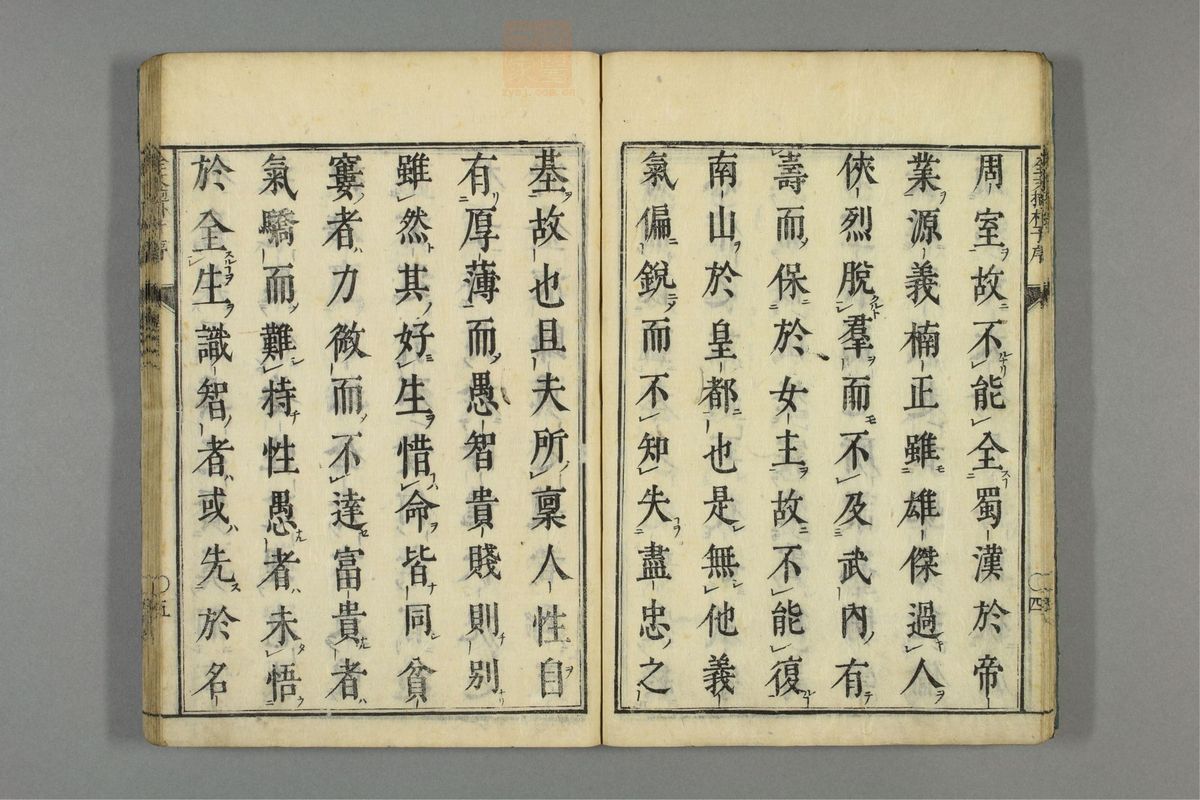 周室故不能全蜀漢於帝
業源義楠正雖雄傑過人
俠烈脫羣而不及武內有
壽而保於女主故不能復
南山於皇都也是無他義
氣偏銳而不知失盡忠之
四
基故也且夫所稟人性自
有厚薄而愚智貴賤則別
雖然其好生惜命皆同貧
窶者力微而不達富貴者
氣驕而難恃性愚者未悟
於全生識智者或先於名
五
zysj.com.cn